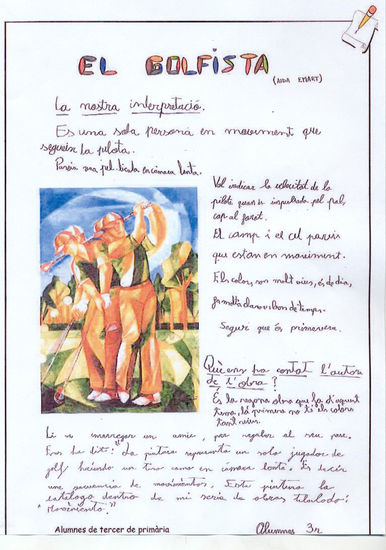 EL GOLFISTA
(AIDA EMART)
La nostra interpretació.
Es una sola persona en moviment que
segueix la pilota.
Pareix una pel·lícula en càmera lenta.
Vol indicar la velocitat de la
pilota quan és impulsada pel pal,
cap al forat.
El camp i el cel pareix
que estan en moviment.
Els colors, son molt vius, és de dia,
fa molta claror i bon de temps.
Segur que és primavera.
Què ens ha contat l'autora
de l'obra?
És la segona obra que fa d'aquest
tema, la primera no té els colors
tant vius.
Li va encarregar un amic, per regalar al seu pare.
Ens ha dit: "La pintura representa un solo jugador de
golf haciendo un tiro como en cámara lenta. Es decir
una secuencia de movimientos. Esta pintura la
catálogo dentro de mi serie de obras titulada:
"Movimiento".
Alumnes de tercer de primària
Alumnes 3r